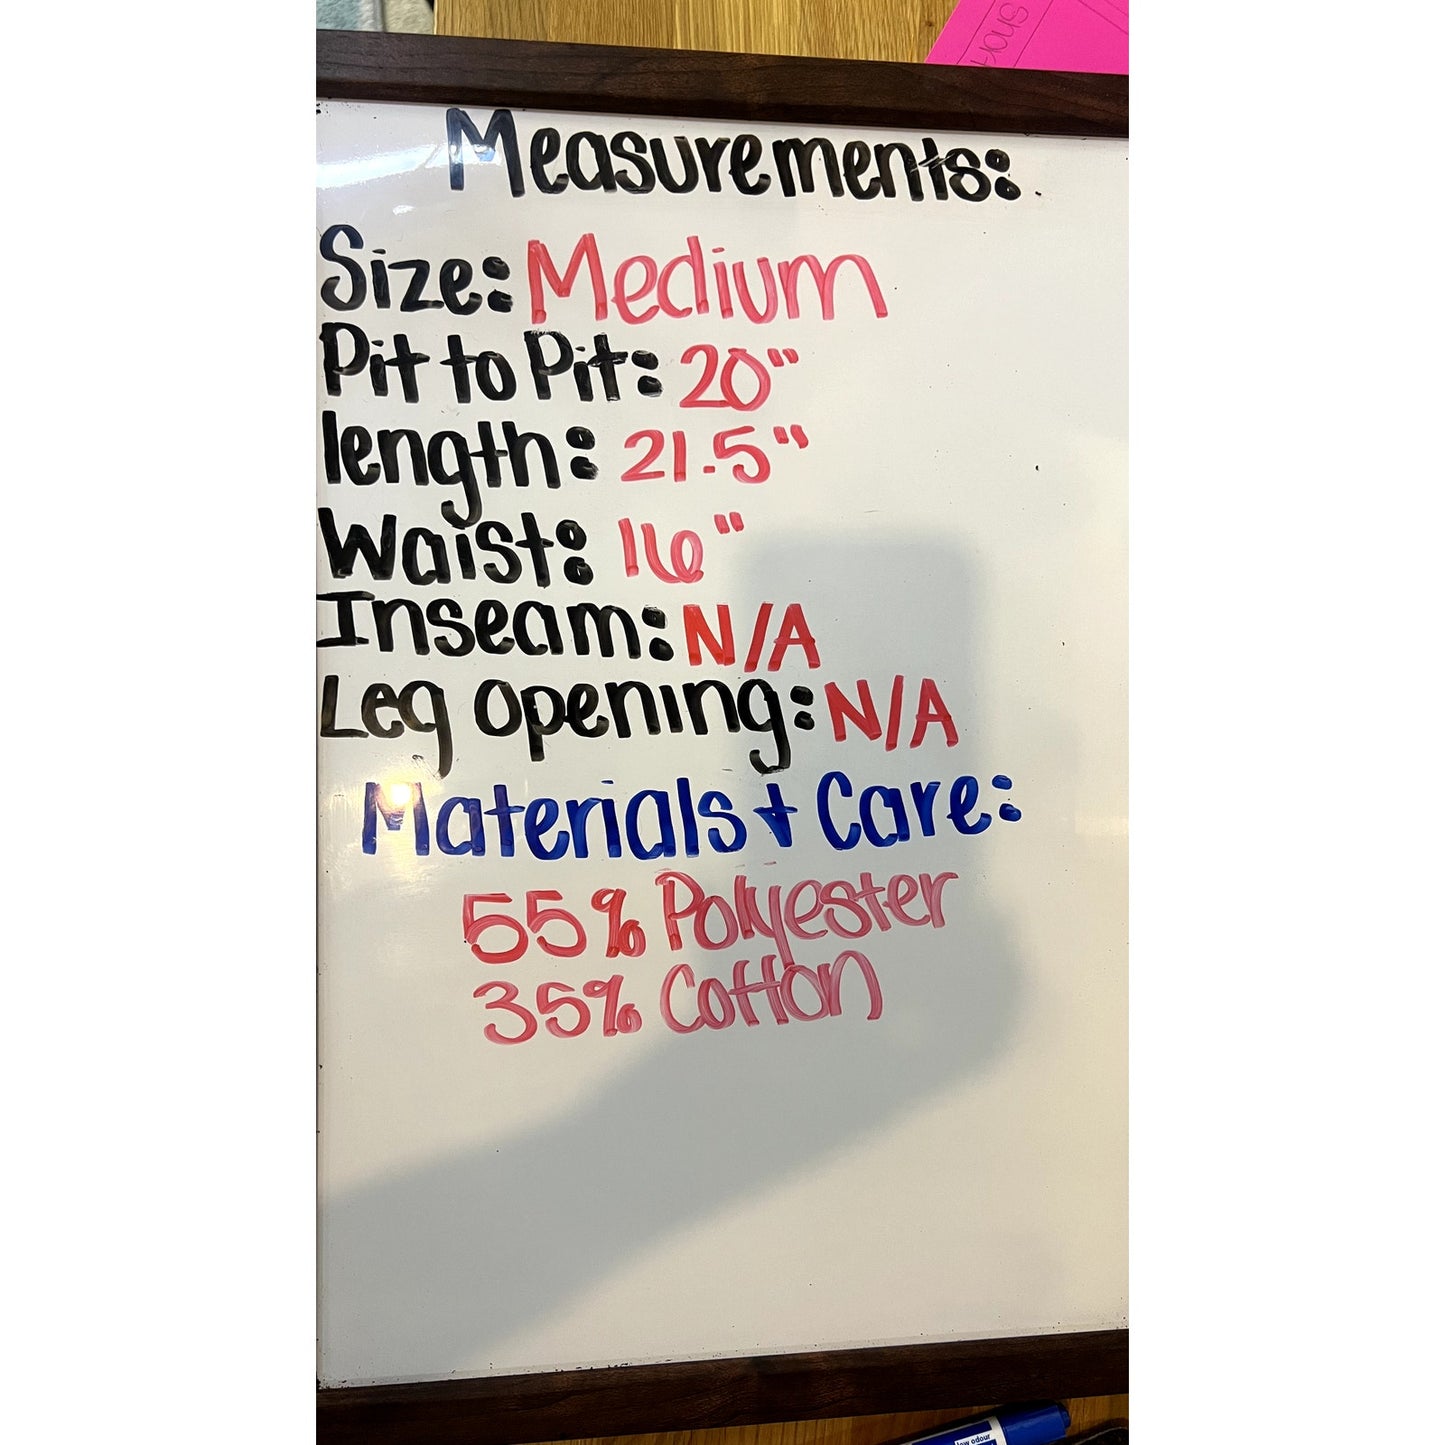 Short
Measurements:
Size: Medium
Pit to Pit: 20"
length: 21.5"
Waist: 16"
Inseam: N/A
Leg opening: N/A
Materials + Care:
55% Polyester
35% Cotton
low odour